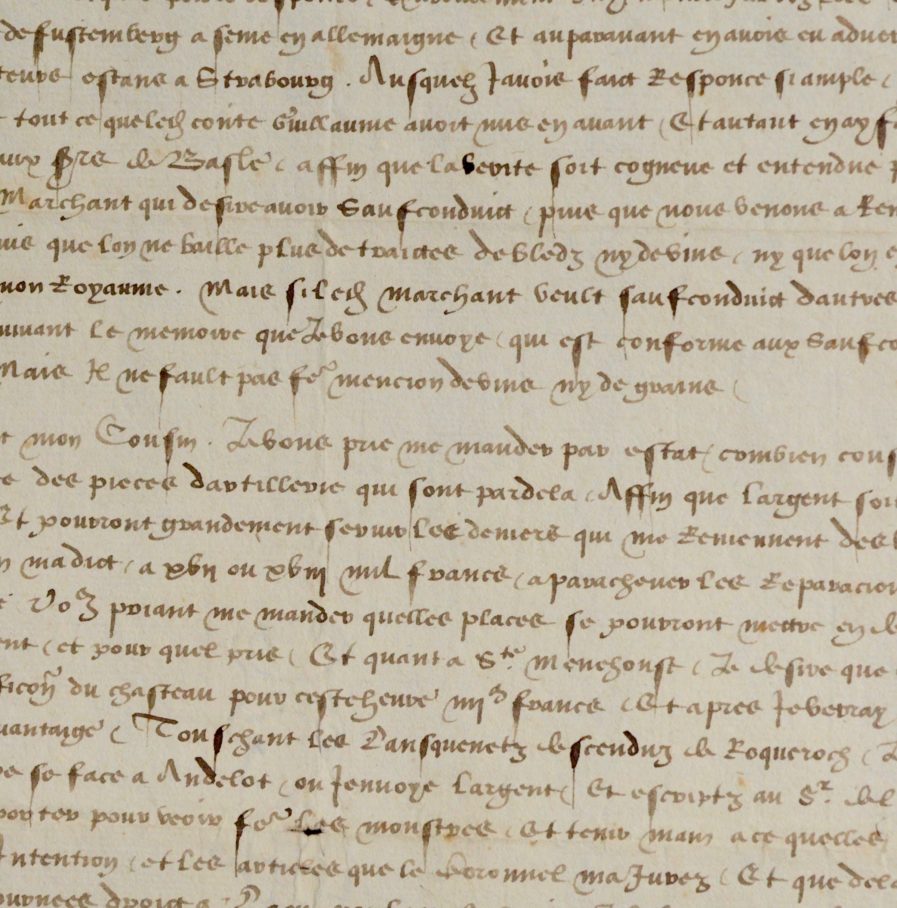 de fustemberg a seme en allemaigne, Et auparavant en avois eu adver
teurs estans a Strabourg. Ausquelz Javois faict Responce si ample,
tout ce que led conte Guillaume avoit mis en avant, Et autant en ay f
aux srs de Basle, affin que la verite soit cogneue et entendue p
Marchant qui desire avoir Saufconduict, puis que nous venons a Ren
uis que lon ne baille plus de traictes de bledz ny de vins, ny que lon e
mon Royaume. Mais si led marchant veult saufconduict dautres
uivant le memoire que Je vous envoye, qui est conforme aux Saufco
Mais Il ne fault pas fe mencion de vins ny de grains,
t mon Cousin. Je vous prie me mander par estat, combien cous
des pieces dartillerie qui sont pardela, Affin que largent soit
Et pourront grandement servir les deniers qui me Reviennent des
n madict, a xvii ou xviii mil francs, a parachever les Reparacion
Vo9 priant me mander quelles places se pourront mettre en de
ent, et pour quel pris, Et quant a Ste Menehoust, Je desire que
du chasteau pour ceste heure francs, Et apres Je verray
vantaige, Touschant les Lansquenetz descenduz de Roqueroch,
se face a Andelot, ou Jenvoye largent, Et escriptz au Sr de l
porter pour veoir fe les monstres, Et tenir main a ce quelles
Intention, et les articles que le Coronnel ma Jurez, Et que dela
ournees droict a